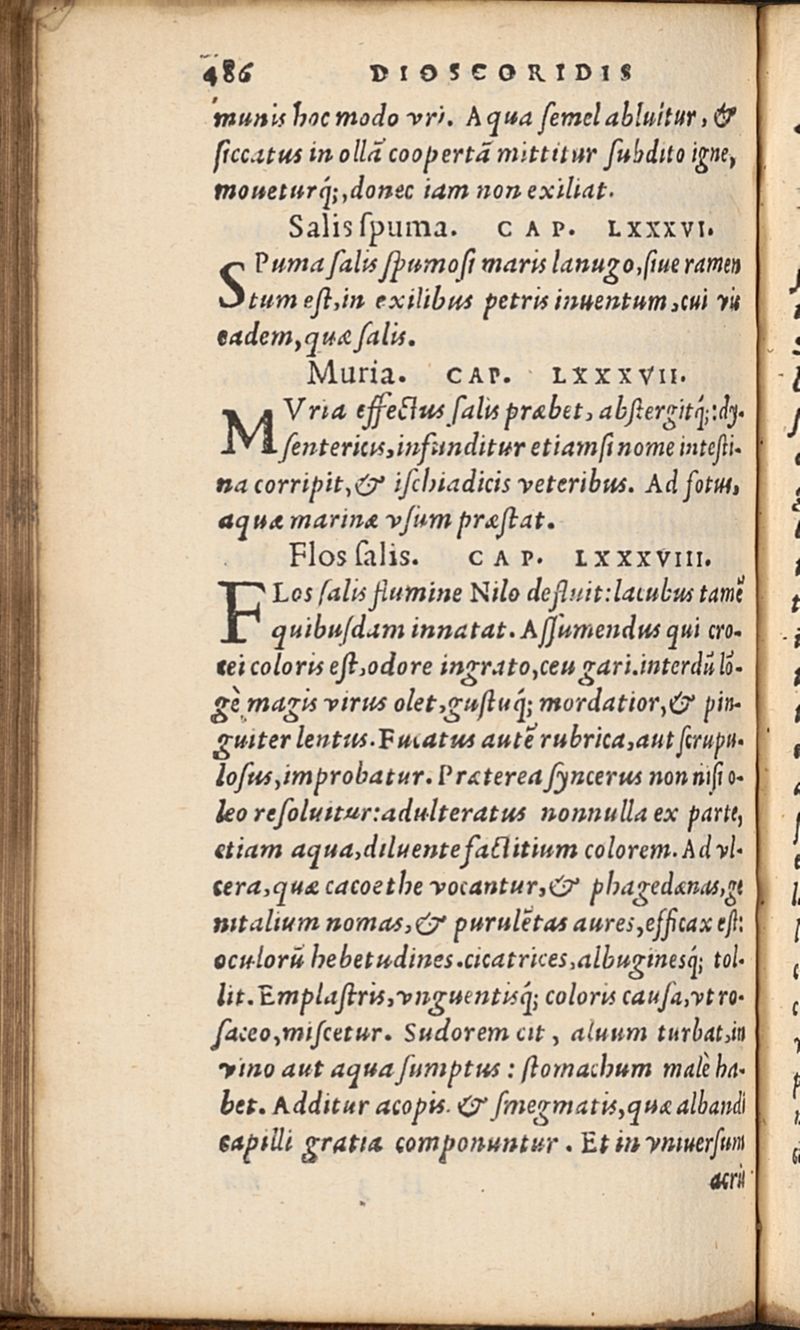 486 DIOSCORIDIS
munis hoc modo vri. Aqua semel abluitur, &
siccatus in ollā coopertā mittitur subdito igne,
moueturq́;, donec iam non exiliat.
Salis spuma. CAP. LXXXVI.
SPuma salis spumosi maris lanugo, siue ramen
tum est, in exilibus petris inuentum, cui vis
eadem, quæ salis.
Muria. CAP. LXXXVII.
MVria effectus salis præbet, abstergitq́;: dy-
sentericis, infunditur etiamsi nome intesti-
na corripit, & ischiadicis veteribus. Ad fotus,
aquæ marinæ vsum præstat.
Flos salis. CAP. LXXXVIII.
FLos salis flumine Nilo defluit: lacubus tamē
quibusdam innatat. Assumendus qui cro-
cei coloris est, odore ingrato, ceu gari. interdū lō-
gè magis virus olet, gustuq́; mordatior, & pin-
guiter lentus. Fucatus autē rubrica, aut scrupu-
losus, improbatur. Præterea syncerus non nisi o-
leo resoluitur: adulteratus nonnulla ex parte,
etiam aqua, diluente factitium colorem. Ad vl-
cera, quæ cacoethe vocantur, & phagedænas, ge
nitalium nomas, & purulētas aures, efficax est:
oculorū hebetudines. cicatrices, albuginesq́; tol-
lit. Emplastris, vnguentisq́; coloris causa, vt ro-
saceo, miscetur. Sudorem cit, aluum turbat, in
vino aut aqua sumptus: stomachum malè ha-
bet. Additur acopis. & smegmatis, quæ albandi
capilli gratia componuntur. Et in vniuersum
acris